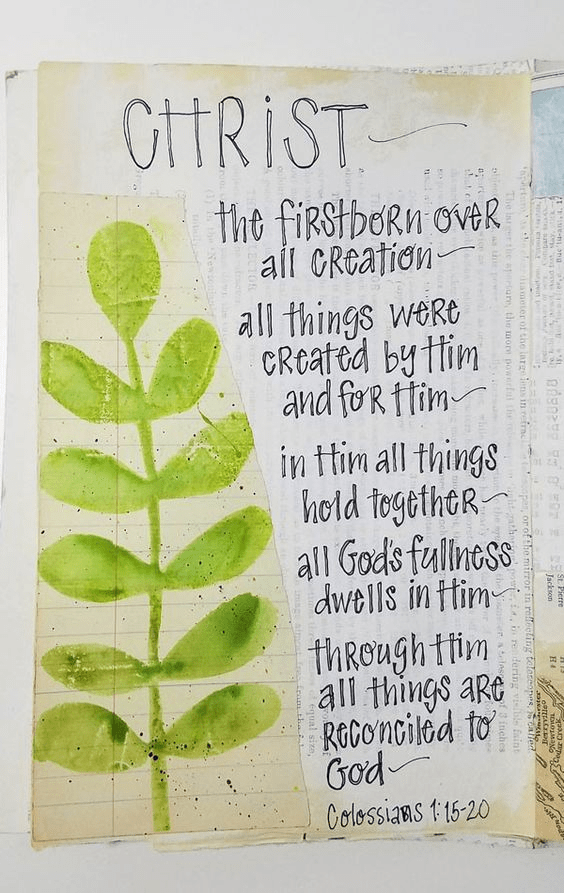 CHRiST
the firstborn over
all creation
all things were
created by Him
and for Him
in Him all things
hold together
all God's fullness
dwells in Him
through Him
all things are
reconciled to
God
Colossians 1:15-20
St. Pierre
Jackson